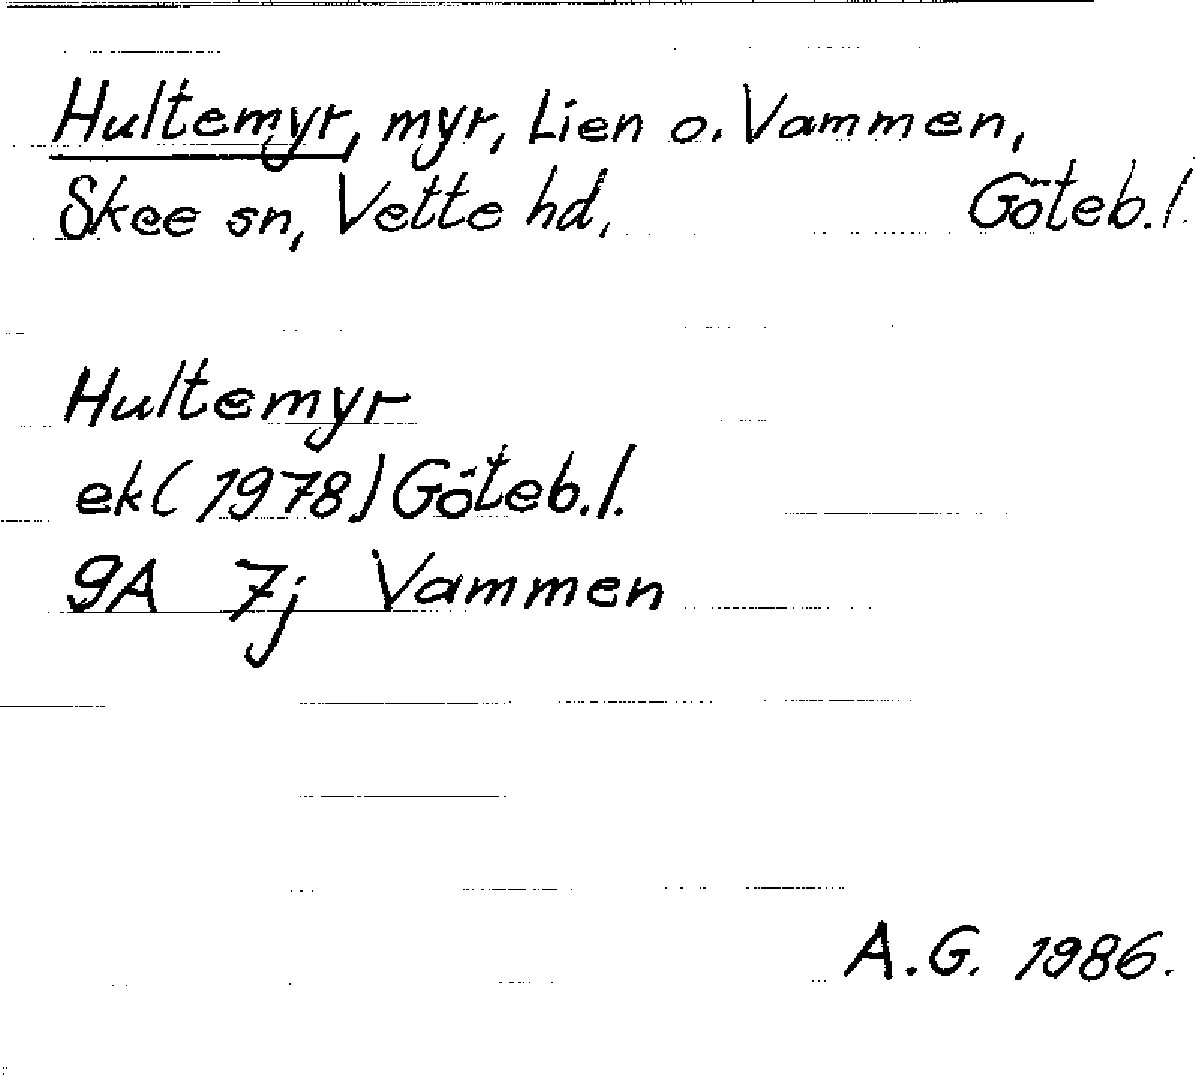 Hultemyr, myr, Lien o. Vammen,
Skee sn, Vette hd, Göteb. l.
Hultemyr
ek (1978) Göteb. l.
9A 7j Vammen
A.G. 1986.